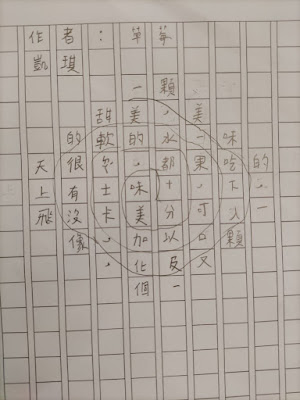 作者：草莓
凱琪
一顆
甜美，美
的軟的水一味
天很，都果吃的
上有士味十，下，
飛沒卡美分可人一
像，加以口顆
，化及又
個一